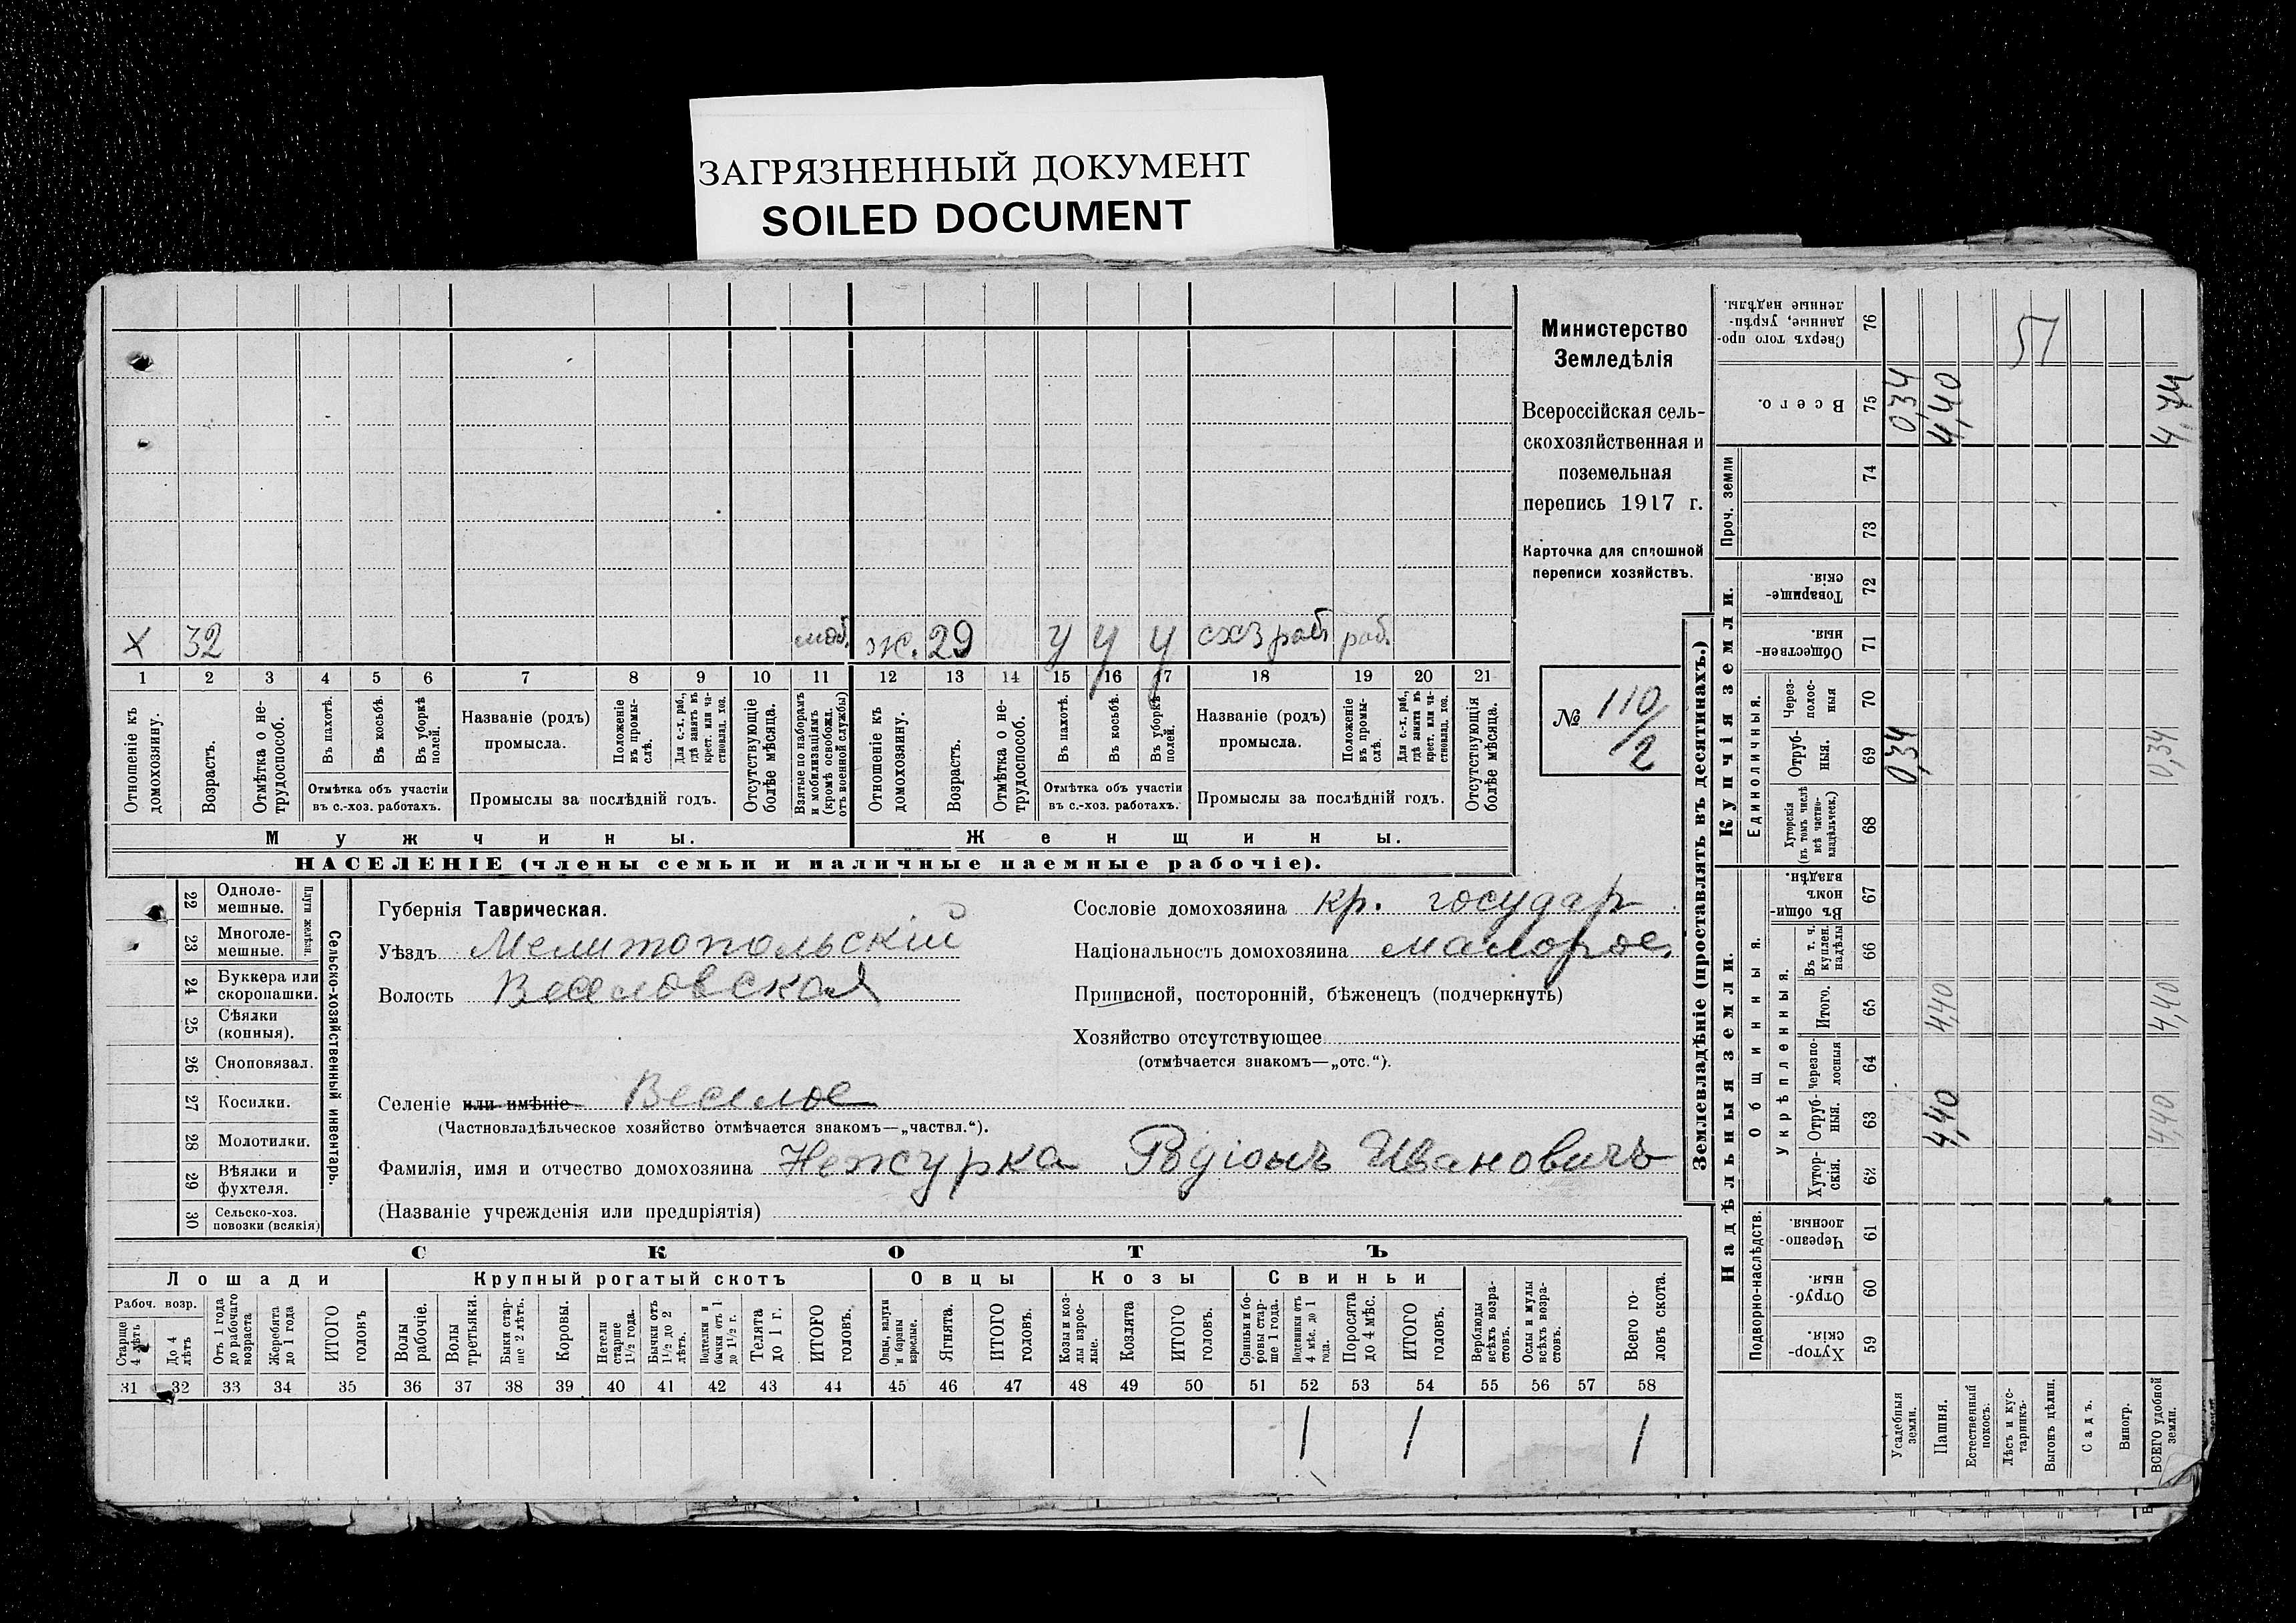 ЗАГРЯЗНЕННЫЙ ДОКУМЕНТ
SOILED DOCUMENT
Министерство
Земледѣлія
Всероссійская сель-
скохозяйственная и
поземельная
перепись 1917 г.
Карточка для сплошной
переписи хозяйствъ.
№ 110/2
Х 32 моб. ж. 29 у у у схз раб. раб.
1 2 3 4 5 6 7 8 9 10 11 12 13 14 15 16 17 18 19 20 21
Отношеніе къ домохозяину.
Возрастъ.
Отмѣтка о не-трудоспособ.
Въ пахотѣ.
Въ косьбѣ.
Въ уборкѣ полей.
Отмѣтка объ участіи
въ с.-хоз. работахъ.
Названіе (родъ)
промысла.
Положеніе въ промы-слѣ.
Для с.-х. раб., гдѣ занятъ въ крест. или ча-стновлад. хоз.
Промыслы за послѣдній годъ.
Отсутствующіе болѣе мѣсяца.
Взятые по наборамъ и мобилизаціямъ (кромѣ освобожд. отъ военной службы)
Отношеніе къ домохозяину.
Возрастъ.
Отмѣтка о не-трудоспособ.
Въ пахотѣ.
Въ косьбѣ.
Въ уборкѣ полей.
Отмѣтка объ участіи
въ с.-хоз. работахъ.
Названіе (родъ)
промысла.
Положеніе въ промы-слѣ.
Для с.-х. раб., гдѣ занята въ крест. или ча-стновлад. хоз.
Промыслы за послѣдній годъ.
Отсутствующія болѣе мѣсяца.
Мужчины. Женщины.
НАСЕЛЕНІЕ (члены семьи и наличные наемные рабочіе).
Сельско-хозяйственный инвентарь.
Плуги желѣзн.
22 Одноле-мешные.
23 Многоле-мешные.
24 Буккера или скоропашки.
25 Сѣялки (конныя).
26 Сноповязал.
27 Косилки.
28 Молотилки.
29 Вѣялки и фухтеля.
30 Сельско-хоз. повозки (всякія)
Губернія Таврическая.
Уѣздъ Мелитопольскій
Волость Веселовская
Селеніе или имѣніе Веселое
(Частновладѣльческое хозяйство отмѣчается знакомъ—„частвл.“).
Сословіе домохозяина кр. государ
Національность домохозяина малорос.
Приписной, посторонній, бѣженецъ (подчеркнуть)
Хозяйство отсутствующее
(отмѣчается знакомъ—„отс.“).
Фамилія, имя и отчество домохозяина Нежурка Родіонъ Ивановичъ
(Названіе учрежденія или предпріятія)
СКОТЪ
Лошади Крупный рогатый скотъ Овцы Козы Свиньи
Рабоч. возр.
Старше 4 лѣтъ
До 4 лѣтъ
Отъ 1 года до рабочаго возраста
Жеребята до 1 года
ИТОГО головъ
Волы рабочіе.
Волы третьяки.
Быки стар-ше 2 лѣтъ.
Коровы.
Нетели старше 1½ года.
Бычки отъ 1½ до 2 лѣтъ.
Подтелки и бычки отъ 1 до 1½ г.
Телята до 1 г.
ИТОГО головъ.
Овцы, валухи и бараны взрослые.
Ягнята.
ИТОГО головъ.
Козы и коз-лы взрос-лые.
Козлята
ИТОГО головъ.
Свиньи и бо-ровы стар-ше 1 года.
Подсвинки отъ 4 мѣс. до 1 года.
Поросята до 4 мѣс.
ИТОГО головъ.
Верблюды всѣхъ возра-стовъ.
Ослы и мулы всѣхъ возра-стовъ.
Всего го-ловъ скота.
31 32 33 34 35 36 37 38 39 40 41 42 43 44 45 46 47 48 49 50 51 52 53 54 55 56 57 58
1 1 1
Землевладѣніе (проставлять въ десятинахъ.)
Надѣльныя земли. Купчія земли. Проч. земли
Подворно-наслѣдств.
Общинныя.
Укрѣпленныя.
Единоличныя.
Хутор-скія. 59
Отруб-ныя. 60
Черезпо-лосныя. 61
Хутор-скія. 62
Отруб-ныя. 63
Черезпо-лосныя 64
Итого. 65
Въ т. ч. куплен. надѣлы 66
Въ общи-номъ владѣн. 67
Хуторскія (въ томъ числѣ всѣ частно-владѣльческ.) 68
Отруб-ныя. 69
Через-полос-ныя 70
Обществен-ныя. 71
Товарище-скія. 72
73
74
Всего. 75
Сверхъ того про-данные, укрѣп-ленные надѣлы. 76
Усадебныя земли. 0,34 0,34
Пашня. 4,40 4,40 4,40
Естественный покосъ.
Лѣсъ и кус-тарникъ.
51
Выгонъ цѣлин.
Садъ.
Виногр.
ВСЕГО удобной земли. 4,40 4,40 0,34 4,74